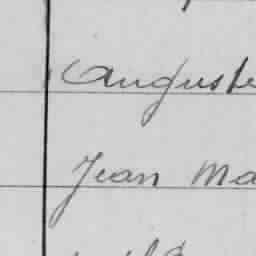 Auguste
Jean Ma